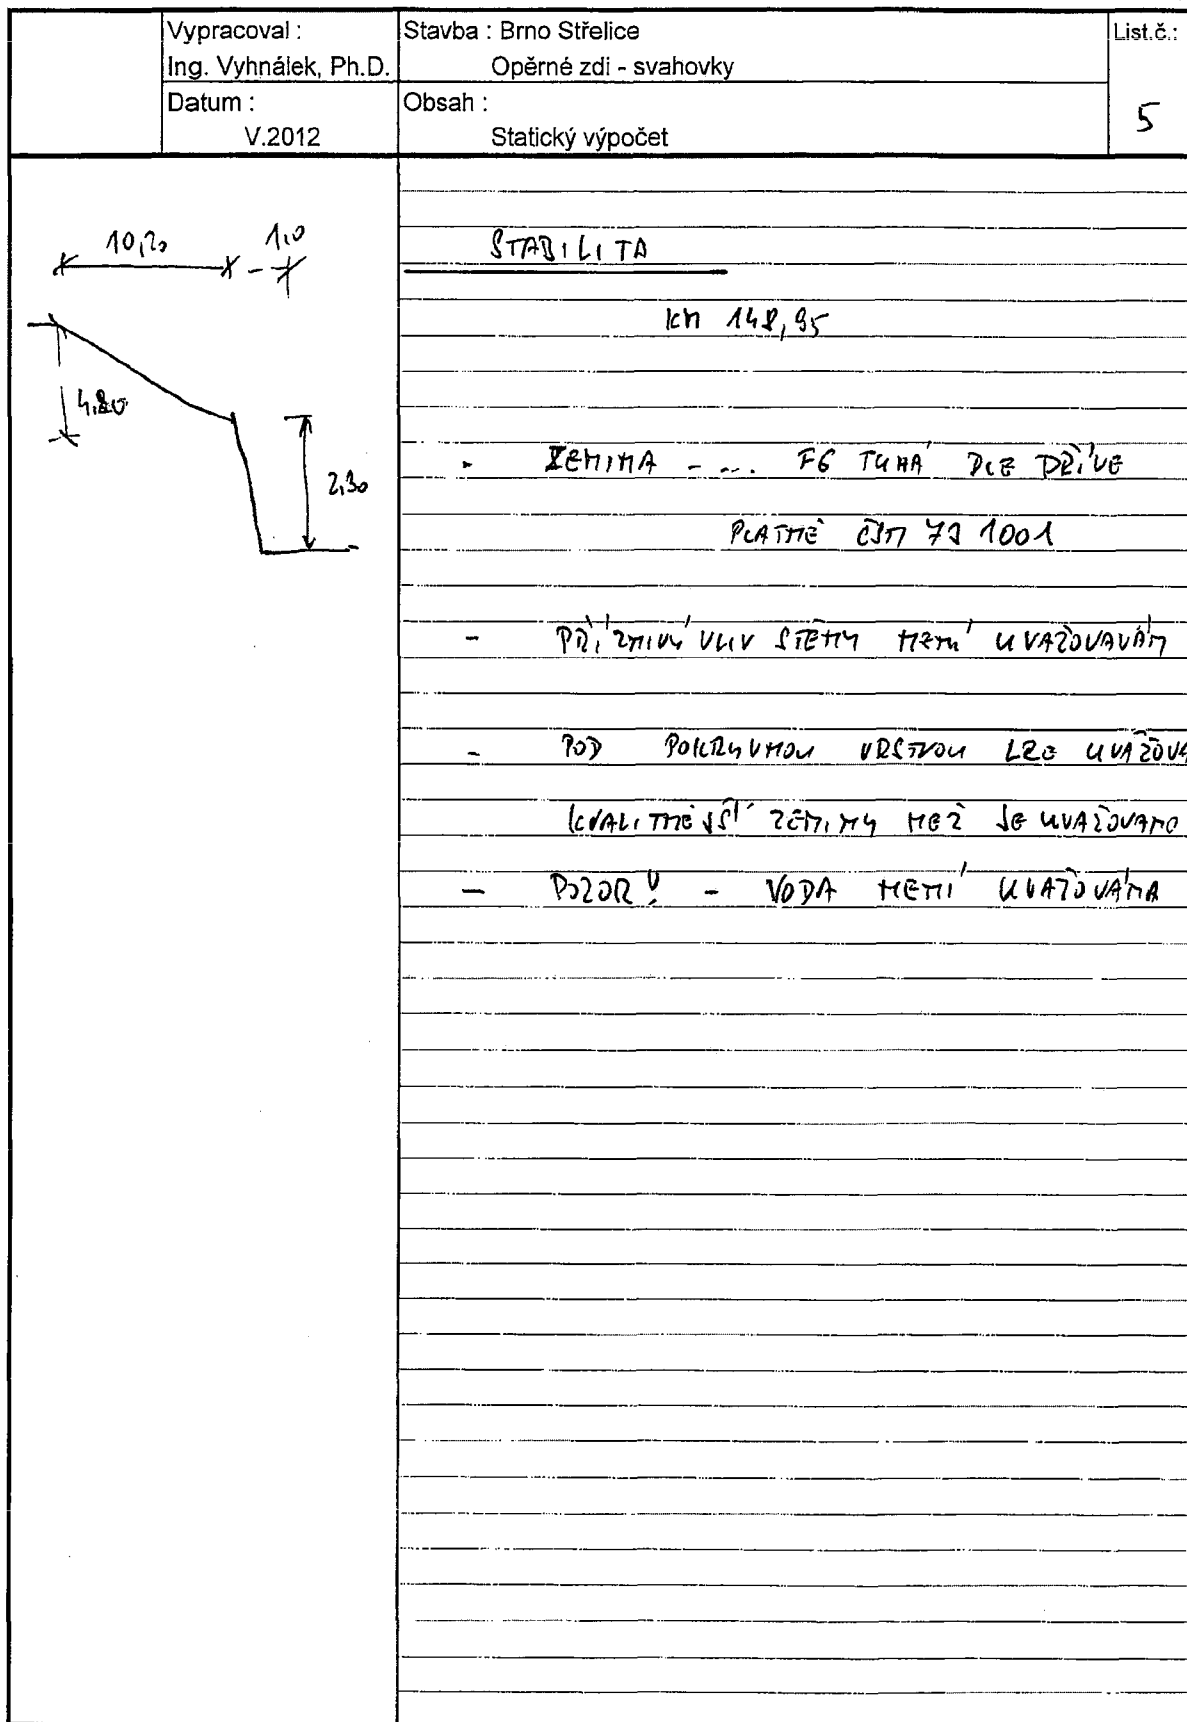 Vypracoval :
Ing. Vyhnálek, Ph.D.
Datum :
V.2012
Stavba : Brno Střelice
Opěrné zdi - svahovky
Obsah :
Statický výpočet
List.č.:
5
10,20 1,0
4,80
2,30
STABILITA
km 148,95
- ZEMINA - ... F6 TUHÁ DLE DŘÍVE
PLATNÉ ČSN 73 1001
- PŘÍZNIVÝ VLIV STĚNY NENÍ UVAŽOVÁN
- POD POKRYVNOU VRSTVOU LZE UVAŽOVA
KVALITNĚJŠÍ ZEMINY NEŽ JE UVAŽOVÁNO
- POZOR! - VODA NENÍ UVAŽOVÁNA